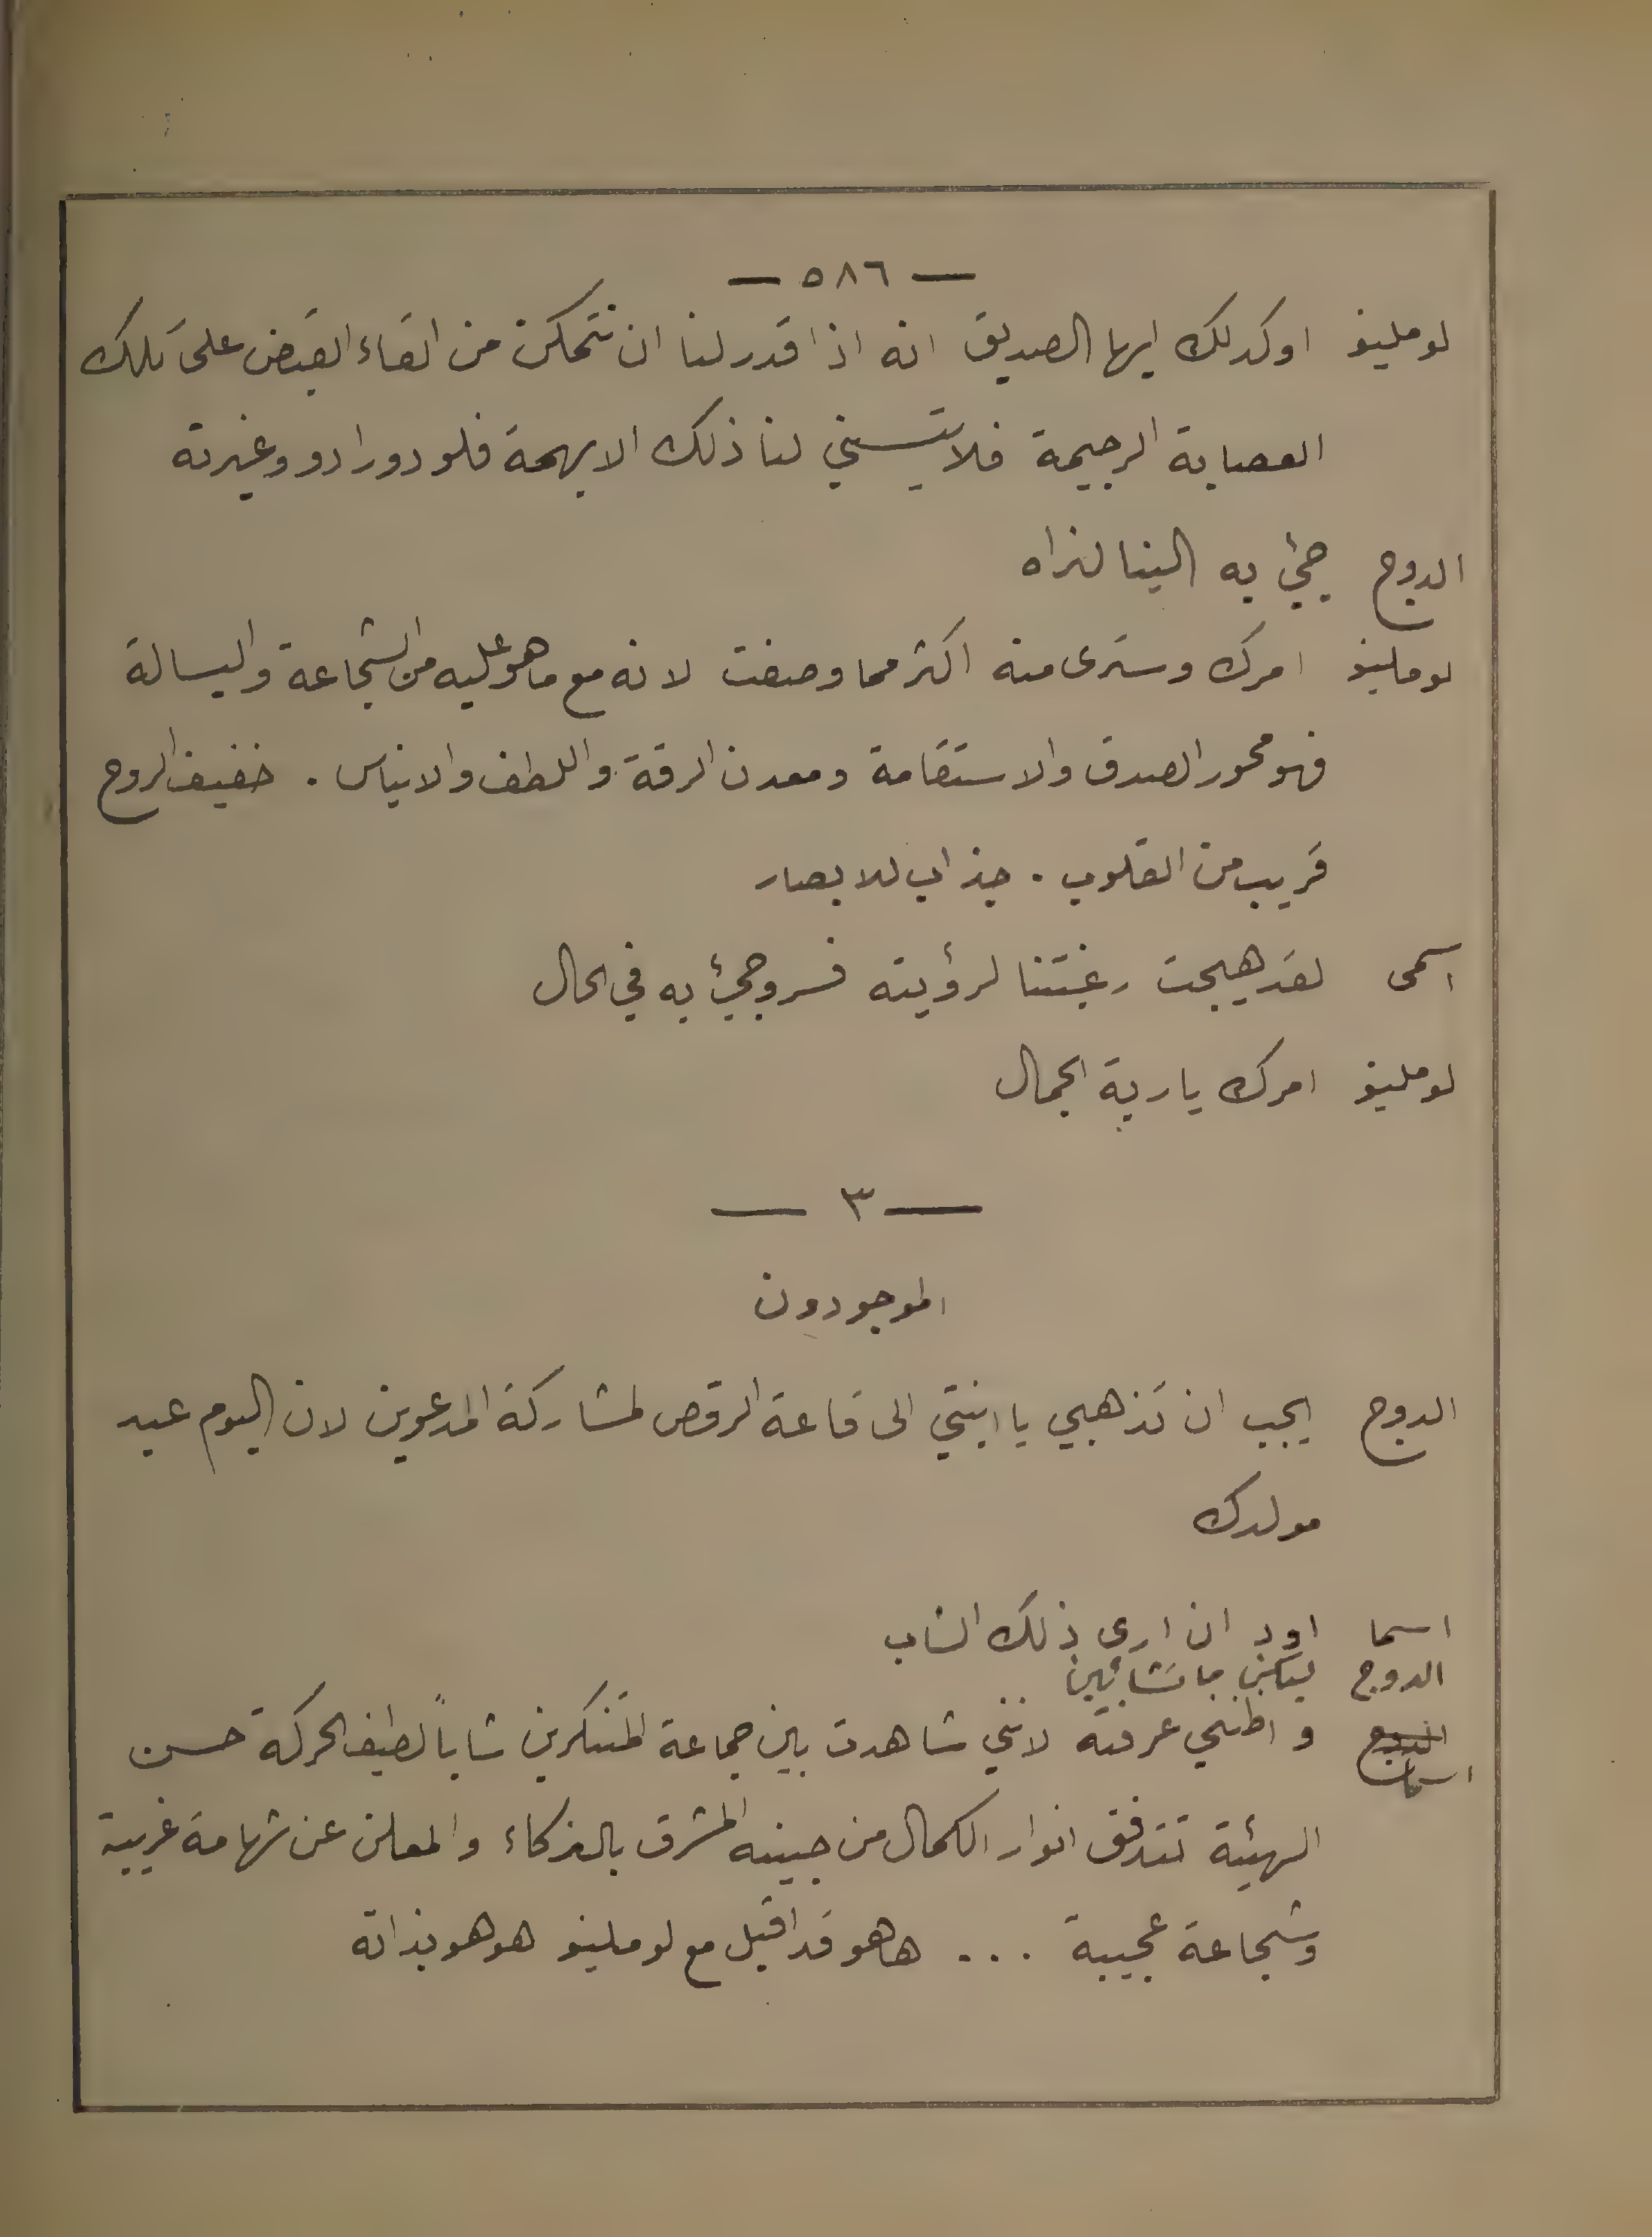 — ٥٨٦ —
لوملينو اوكد لك ايها الصديق انه اذا قدر لنا ان نتمكن من القاء القبض على تلك
العصابة الرجيمة فلا يتسنى لنا ذلك الا بهمة فلودورادو وغيرته
الدوج جئ به الينا لنراه
لوملينو امرك وسترى منه اكثر مما وصفت لانه مع ما هو عليه من الشجاعة والبسالة
فهو محور الصدق والاستقامة ومعدن الرقة واللطف والايناس . خفيف الروح
قريب من القلوب . جذاب للابصار
اسمى لقد هيجت رغبتنا لرؤيته فسر وجئ به في الحال
لوملينو امرك يا ربة الجمال
— ٣ —
الموجودون
الدوج يجب ان تذهبي يا ابنتي الى قاعة الرقص لمشاركة المدعوين لان اليوم عيد
مولدك
اسما اود ان ارى ذلك الشاب
الدوج ليكن ما تشائين
الدوج اسما و اظنني عرفته لانني شاهدت بين جماعة المتنكرين شاباً لطيف الحركة حسن
الهيئة تتدفق انوار الكمال من جبينه المشرق بالذكاء والمعلن عن شهامة غريبة
وشجاعة عجيبة ... ها هو قد اقبل مع لوملينو هو هو بذاته